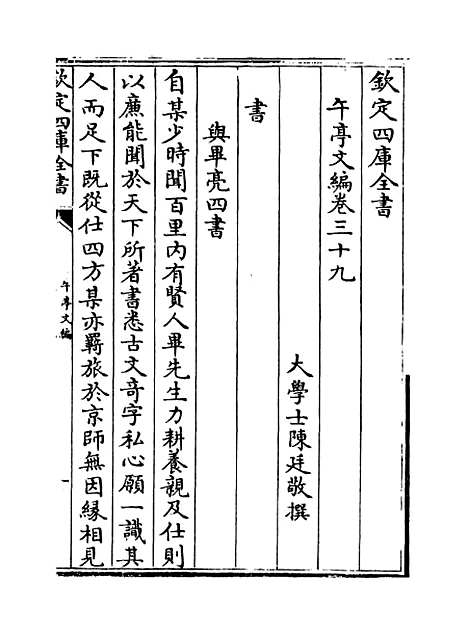 欽定四庫全書
午亭文編卷三十九
大學士陳廷敬撰
書
與畢亮四書
自某少時聞百里內有賢人畢先生力耕養親及仕則
以廉能聞於天下所著書悉古文奇字私心願一識其
人而足下既從仕四方某亦羇旅於京師無因緣相見
欽定四庫全書
午亭文編
一